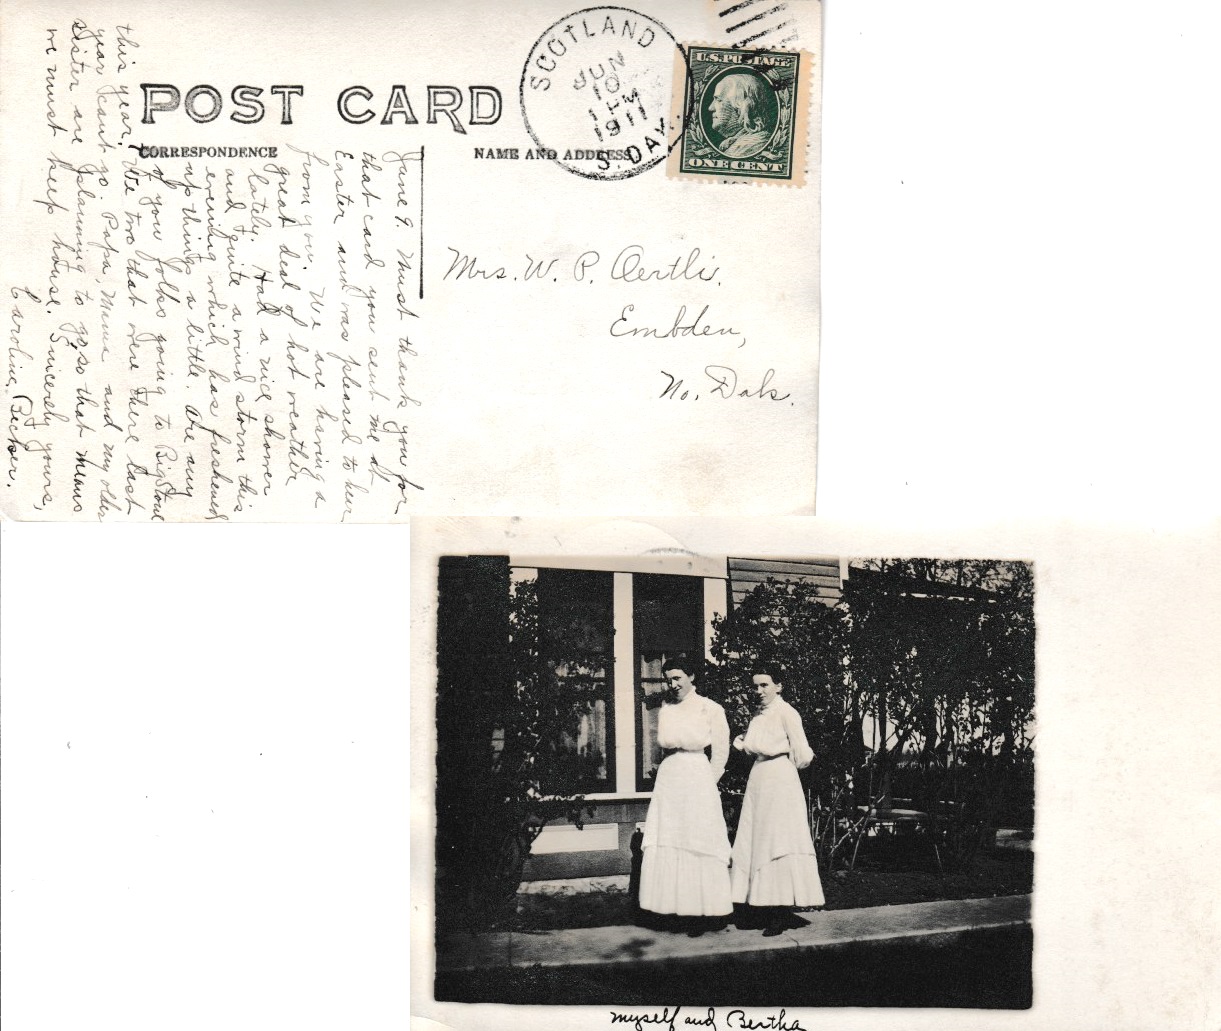 POST CARD
CORRESPONDENCE
NAME AND ADDRESS
SCOTLAND
JUN
10
1 PM
1911
S. DAK.
U.S. POSTAGE
ONE CENT
June 9. Must thank you for
that card you sent me at
Easter and was pleased to hear
from you. We are having a
great deal of hot weather
lately. Had a nice shower
and quite a wind storm this
evening which has freshened
up things a little. Are any
of you folks going to Big Stone
this year? We two that were there last
year can't go. Papa, Mama and my older
sister are planning to go, so that means
we must keep house. Sincerely yours,
Caroline Becker.
Mrs. W. P. Oertli.
Embden,
No. Dak.
myself and Bertha